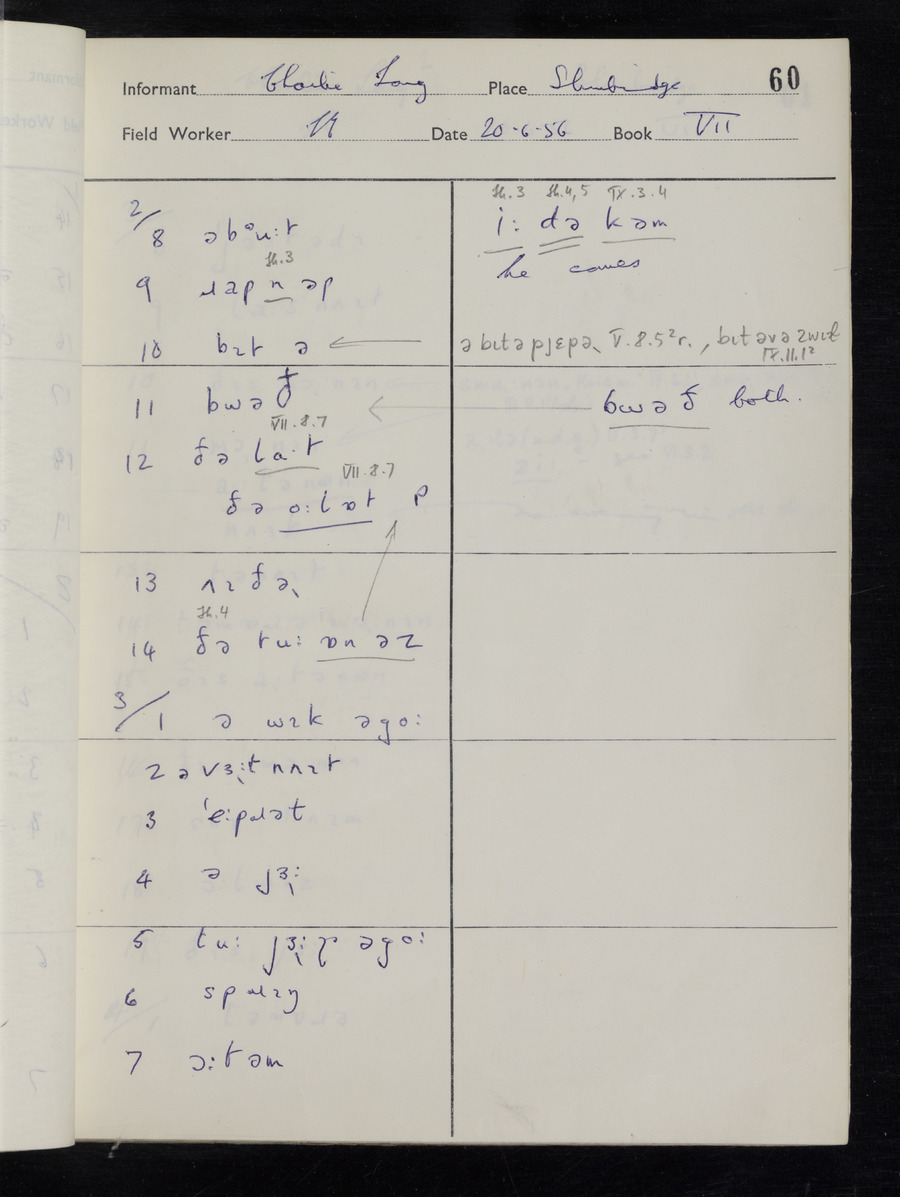 Informant Charlie Long Place Slimbridge 60
Field Worker Date 20·6·56 Book VII
2/8 əbᵊu:t
9 ɹap n əp
sh.3
10 bɪt ə
11 bwə ð
VII.8.7
12 ðə la·t
VII.8.7
ðə ɒ:l ɒt p
13 ʌɪðə˞
sh.4
14 ðə tu: ɒn əz
3/1 ə wɪk əgo:
2 ə vɜ˞:t nnɪt
3 'e:pɹət
4 ə ȷɜ˞:
5 tu: əgo:
6 spɹɪŋ
7 ɔ:təm
sh.3 sh.4,5 IX.3.4
i: də kəm
he comes
ə bɪt ə pȷɛpə˞ V.8.5²r., bɪt əvə zwɪt
IX.11.1²
bwə ð both.